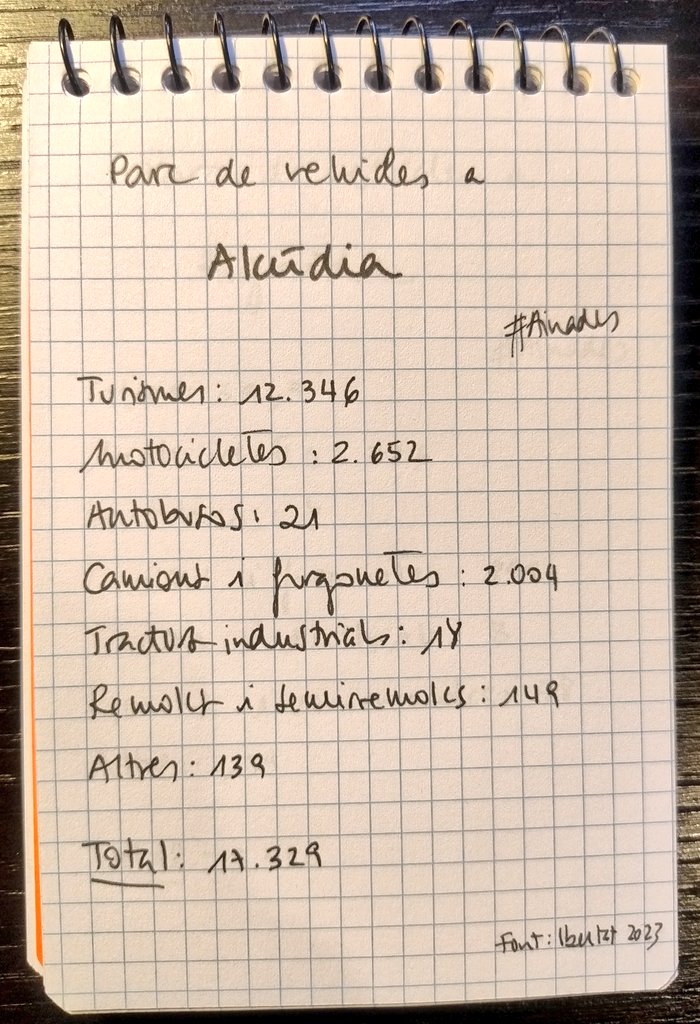 Parc de vehicles a
Alcúdia
Turismes: 12.346
Motocicletes: 2.652
Autobusos: 21
Camions i furgonetes: 2.004
Tractors industrials: 18
Remolcs i semiremolcs: 149
Altres: 139
Total: 17.329
Font: Ibestat 2023